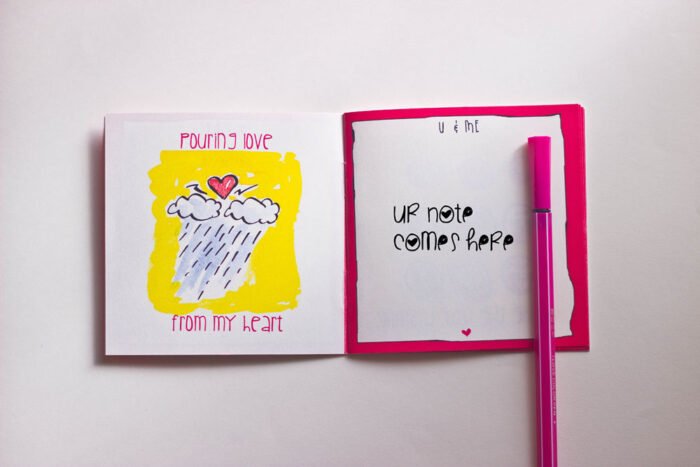 Pouring love
from my heart
U & ME
UR note
comes here